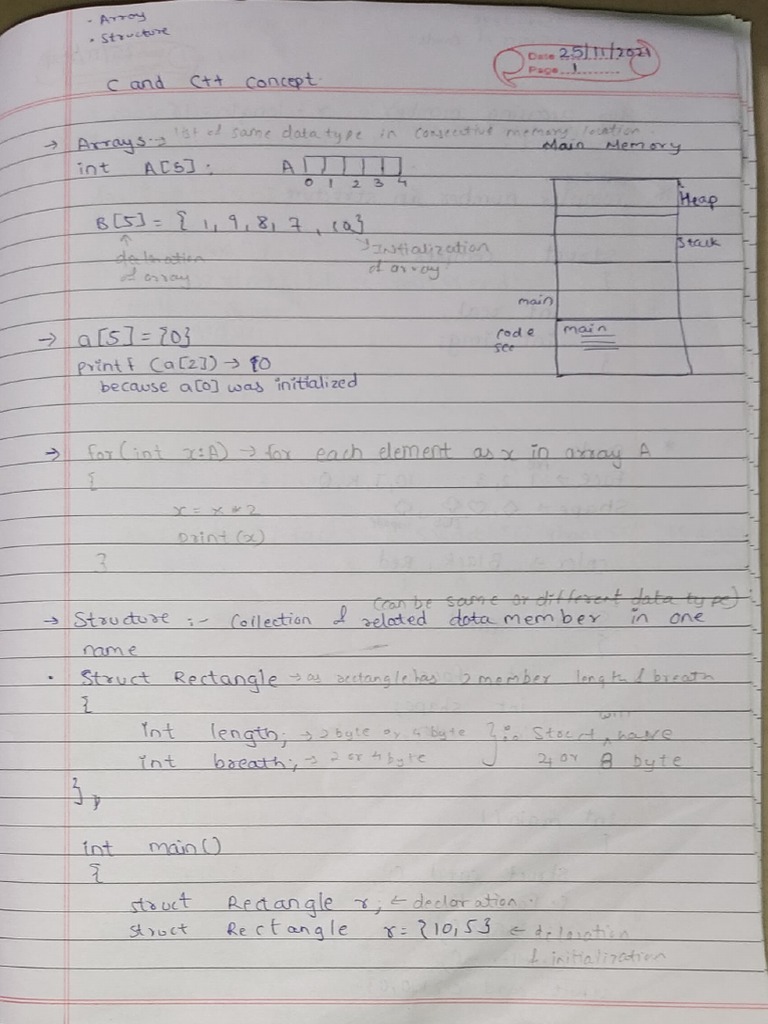 • Array
• Structure
Date 25/11/2021
Page 1
C and C++ Concept
→ Arrays :→ list of same data type in consecutive memory location.
Main Memory
int A[5]; A
0 1 2 3 4
Heap
B[5] = { 1, 9, 8, 7, 10}
Stack
declaration of array
Initialization of array
main
→ a[5] = {0}
code sec
main
printf (a[2]) → 0
because a[0] was initialized
→ for(int x:A) → for each element as x in array A
{
x = x * 2
print (x)
}
(can be same or different data type)
→ Structure :- Collection of related data member in one
name
• Struct Rectangle → as rectangle has 2 member length & breath
{
int length; → 2 byte or 4 byte } ∴ Struct will have
int breath; → 2 or 4 byte 4 or 8 byte
};
int main()
{
struct Rectangle r; ← declaration.
struct Rectangle r = {10,5} ← delaration
& initialization